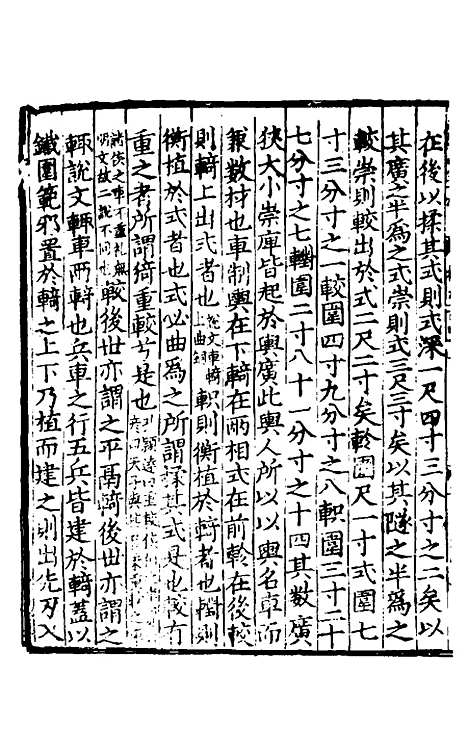 在後以揉其式則式深一尺四寸三分寸之二矣以
其廣之半為之式崇則式三尺三寸矣以其隧之半為之
較崇則較出於式二尺二寸矣軫圍尺一寸式圍七
寸三分寸之一較圍四寸九分寸之八軹圍三寸二十
七分寸之七轛圍二寸八十一分寸之十四其數廣
狹大小崇庳皆起於輿廣此輿人所以以輿名車而
兼數材也車制輿在下輢在兩相式在前軫在後較
則輢上出式者也說文車輢上曲鉤軹則衡植於輢者也轛則
衡植於式者也式必曲為之所謂揉其式是也或有
重之者所謂猗重較兮是也
諸侯之車不重禮無明文故二說不同也較後世亦謂之平鬲輢後世亦謂之
輒說文輒車兩輢也兵車之行五兵皆建於輢蓋以
鐵圍範邪置於輢之上下乃植而建之則出先刃入